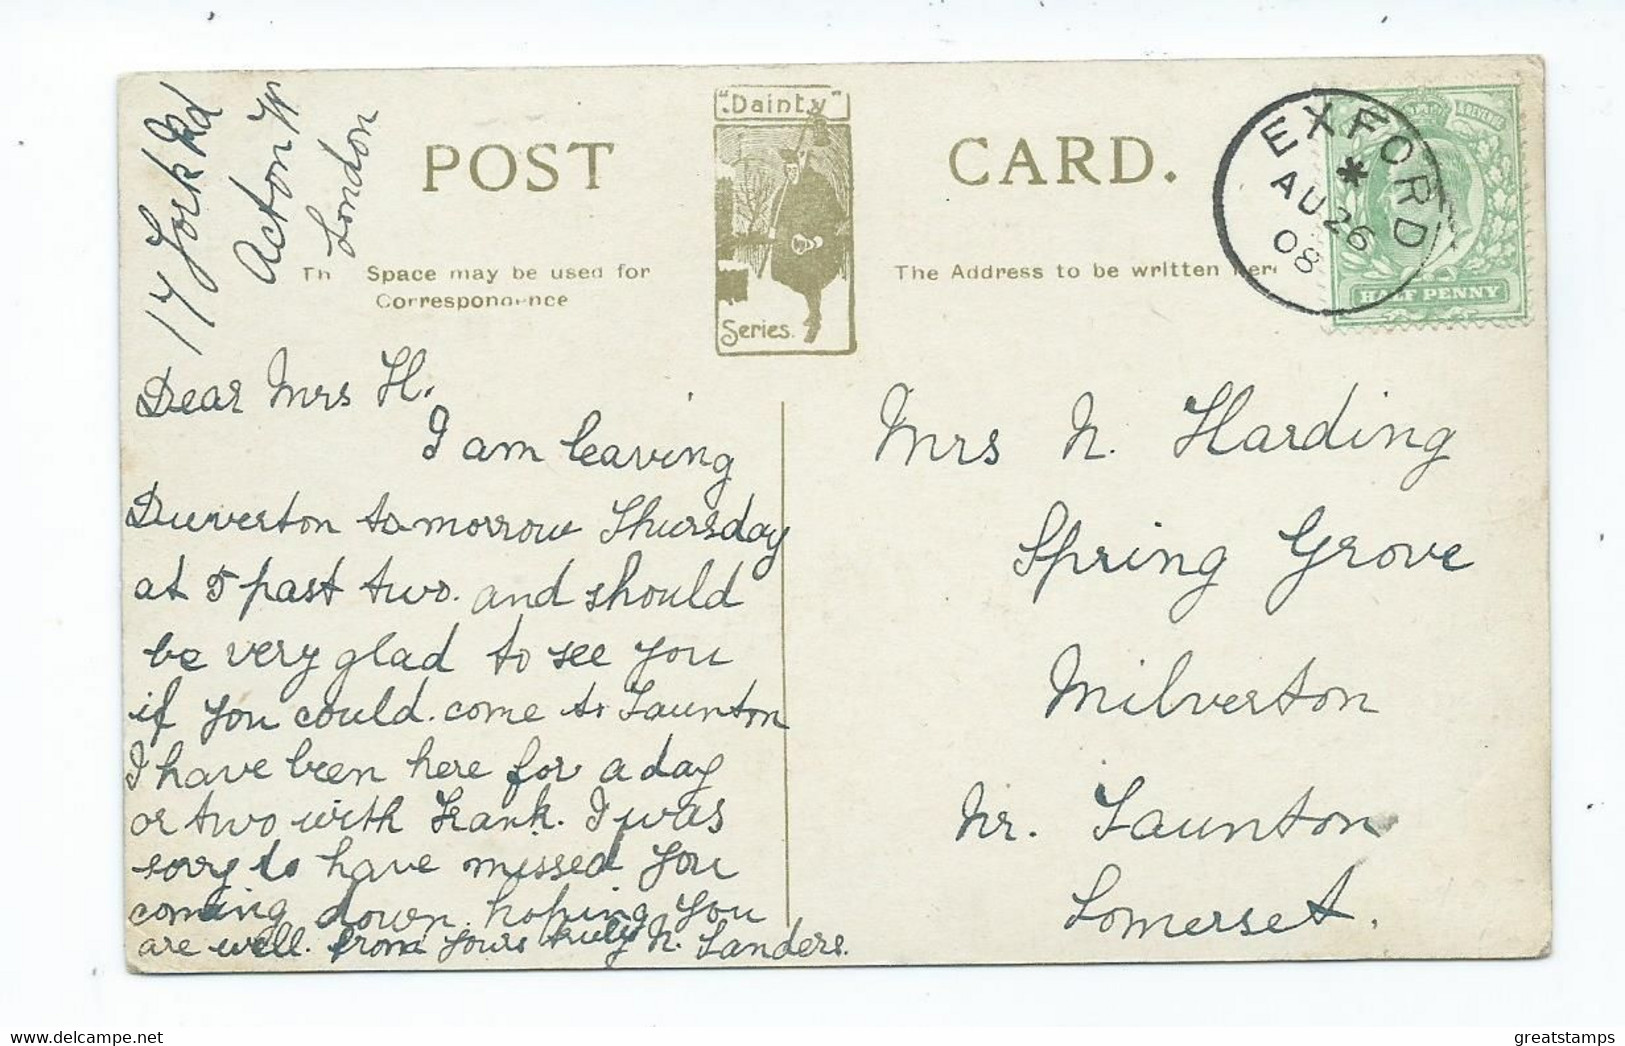 17 York Rd
Acton W
London
POST
"Dainty"
Series.
CARD.
EXFORD
*
AU 26
08
HALF PENNY
Th Space may be used for
Correspondence
The Address to be written here
Dear Mrs H.
I am leaving
Dulverton to morrow Thursday
at 5 past two. and should
be very glad to see you
if you could come to Taunton
I have been here for a day
or two with Frank. I was
sorry to have missed you
coming down. hoping you
are well. from yours truly N. Sanders.
Mrs N. Harding
Spring Grove
Milverton
Nr. Taunton
Somerset.
greatstamps